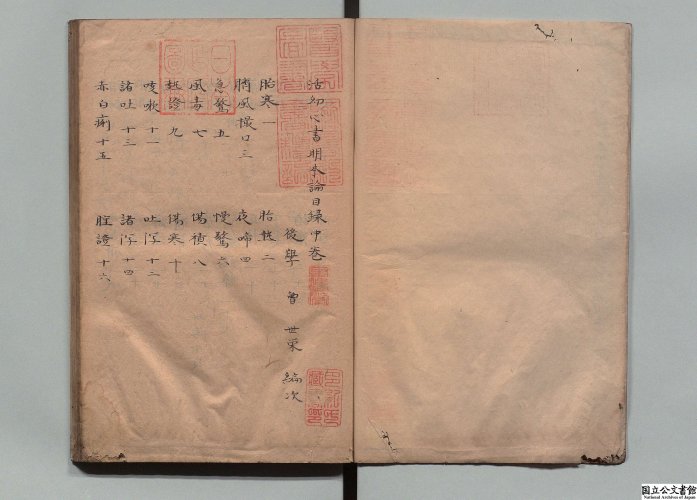 活幼心書明本論目錄中卷
後學 曾 世榮 編次
胎寒一 胎熱二
臍風撮口三 夜啼四
急驚五 慢驚六
風毒七 傷積八
疝證九 傷寒十
咳嗽十一 吐瀉十二
諸吐十三 諸瀉十四
赤白痢十五 痓證十六
国立公文書館
National Archives of Japan